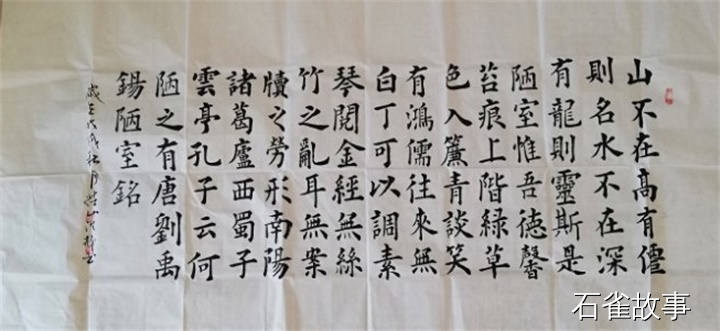 山不在高有僊
則名水不在深
有龍則靈斯是
陋室惟吾德馨
苔痕上階緑草
色入簾青談笑
有鴻儒往來無
白丁可以調素
琴閱金經無絲
竹之亂耳無案
牘之勞形南陽
諸葛廬西蜀子
雲亭孔子云何
陋之有唐劉禹
錫陋室銘
石雀故事